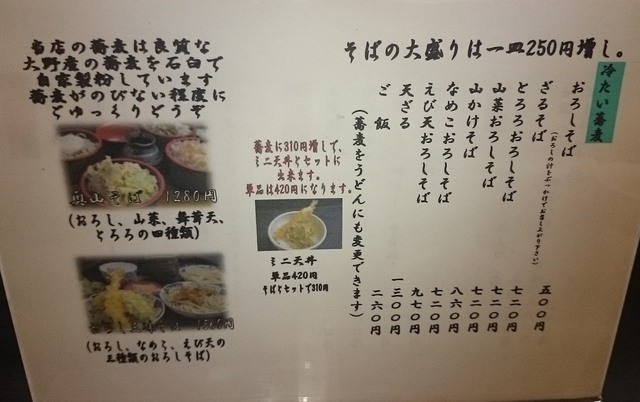 そばの大盛りは一皿250円増し。
冷たい蕎麦
おろしそば
(おろしの汁をぶっかけてお召し上がり下さい)
五〇〇円
ざるそば
七二〇円
とろろおろしそば
七二〇円
山菜おろしそば
七二〇円
山かけそば
八六〇円
なめこおろしそば
七二〇円
えび天おろしそば
九七〇円
天ざる
一三〇〇円
ご飯
二六〇円
(蕎麦をうどんにも変更できます)
蕎麦に310円増しで、
ミニ天丼とセットに
出来ます。
単品は420円になります。
ミニ天丼
単品420円
そばとセットで310円
当店の蕎麦は良質な
大野産の蕎麦を石臼で
自家製粉しています
蕎麦がのびない程度に
ごゆっくりどうぞ
奥山そば 1280円
(おろし、山菜、舞茸天、
とろろの四種類)
(おろし、なめこ、えび天の
三種類のおろしそば)